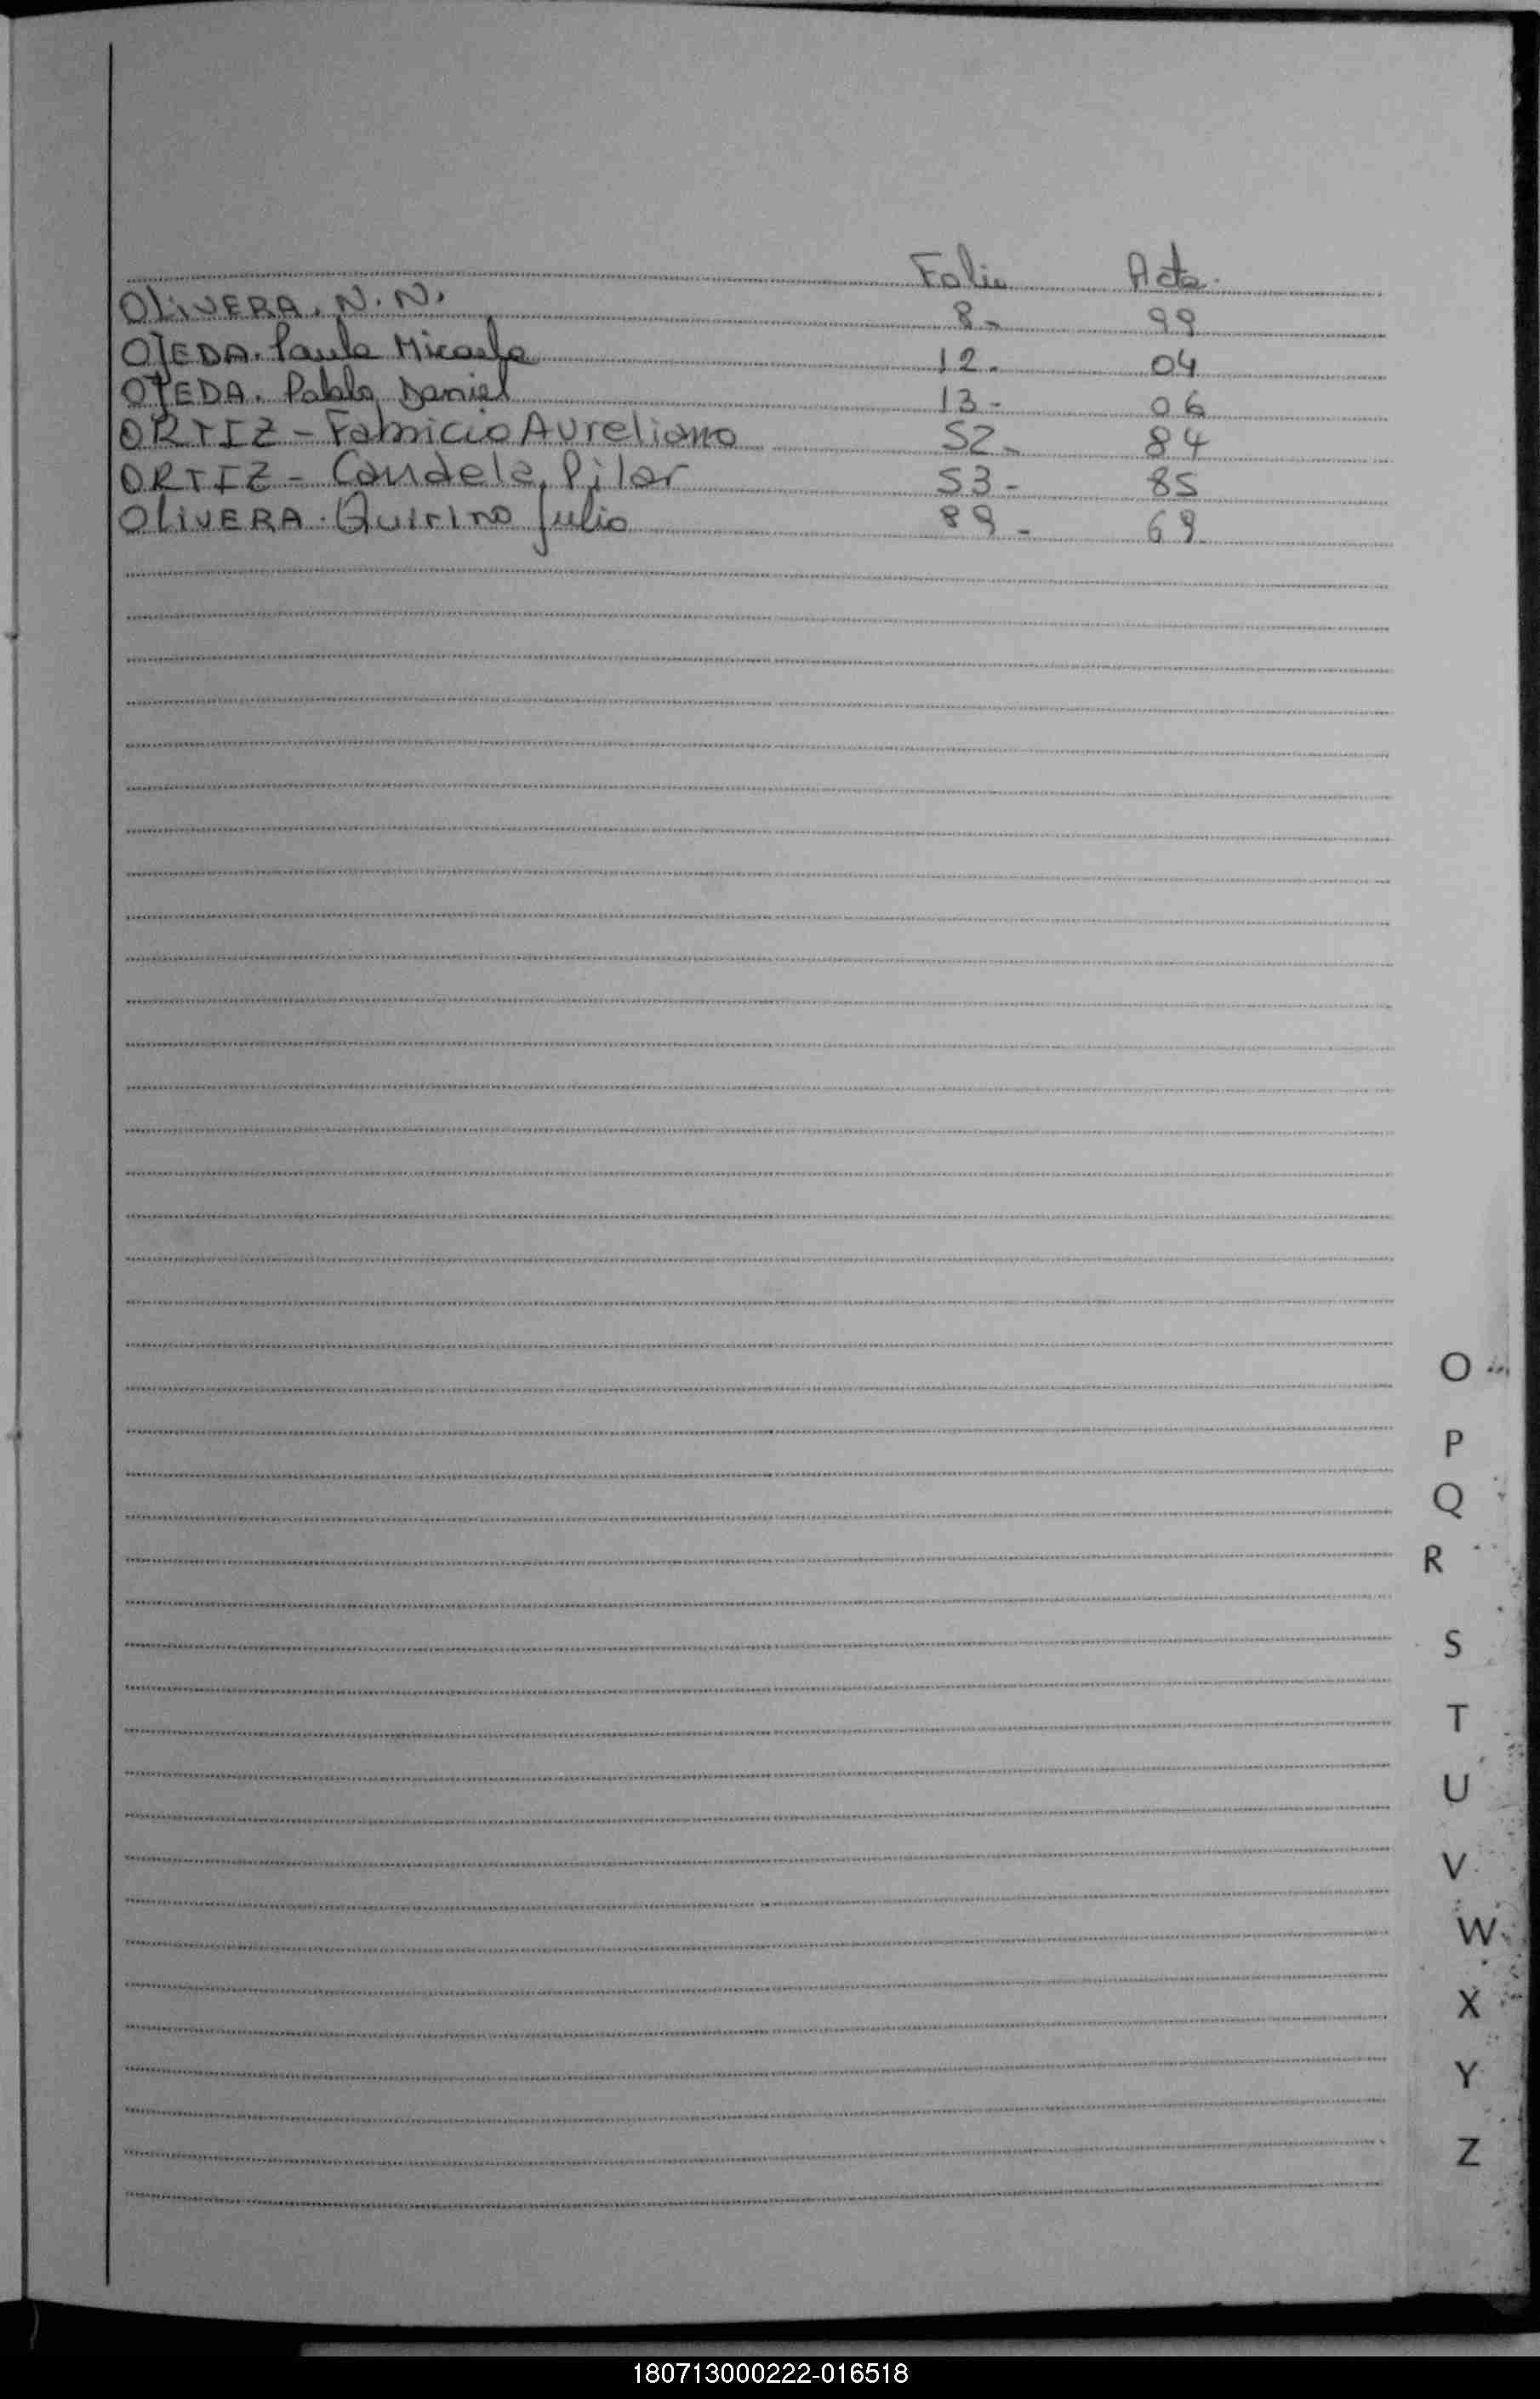 Folio Acta.
OLIVERA. N.N. 8- 99
OJEDA. Paula Micaela 12- 04
OJEDA. Pablo Daniel 13- 06
ORTIZ - Fabricio Aureliano 52- 84
ORTIZ - Candela Pilar 53- 85
OLIVERA. Quirino Julio 89- 69
O
P
Q
R
S
T
U
V
W
X
Y
Z
180713000222-016518